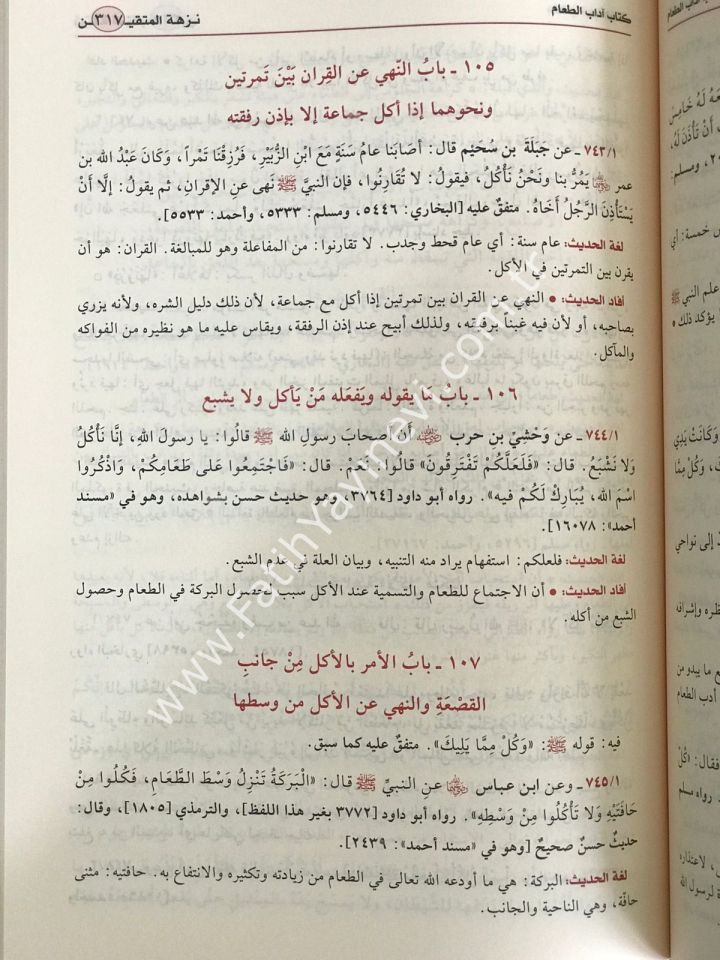 كتاب آداب الطعام
نزهة المتقيــن
٣١٧
١٠٥ ـ بابُ النّهي عن القِران بَيْنَ تَمرتين
ونحوهما إذا أكل جماعة إلا بإذن رفقته
٧٤٣/١ ـ عن جَبَلَةَ بن سُحَيْم قال: أصَابَنا عامُ سَنَةٍ مَعَ ابْنِ الزُّبَيْرِ، فَرُزِقْنَا تَمْراً، وَكَانَ عَبْدُ الله بن
عمر رضي الله عنهما يَمُرُّ بنا ونَحْنُ نَأْكُلُ، فيقولُ: لا تُقَارِنُوا، فإن النبيَّ ﷺ نَهى عنِ الإقرانِ، ثم يقولُ: إلَّا أَنْ
يَسْتَأْذِنَ الرَّجُلُ أَخَاهُ. متفقٌ عليه [البخاري: ٥٤٤٦، ومسلم: ٥٣٣٣، وأحمد: ٥٥٣٣].
لغة الحديث: عام سنة: أي عام قحط وجدب. لا تقارنوا: من المفاعلة وهو للمبالغة. القران: هو أن
يقرن بين التمرتين في الأكل.
أفاد الحديث: • النهي عن القران بين تمرتين إذا أكل مع جماعة، لأن ذلك دليل الشره، ولأنه يزري
بصاحبه، أو لأن فيه غبناً برفقته، ولذلك أبيح عند إذن الرفقة، ويقاس عليه ما هو نظيره من الفواكه
والمآكل.
١٠٦ ـ بابُ مَا يقوله ويَفعَله مَنْ يَأكل ولا يشبع
٧٤٤/١ ـ عن وَحْشيِّ بن حرب رضي الله عنه أن أصحابَ رسولِ الله ﷺ قالُوا: يا رسولَ اللهِ، إنَّا نَأْكُلُ
وَلا نَشْبَعُ. قال: «فَلَعَلَّكُمْ تَفْتَرِقُونَ» قالُوا: نَعَمْ. قال: «فَاجْتَمِعُوا عَلى طَعَامِكُمْ، وَاذْكُرُوا
اسْمَ اللهِ، يُبَارَكْ لَكُمْ فيه». رواه أبو داود [٣٧٦٤، وهو حديث حسن بشواهده، وهو في «مسند
أحمد»: ١٦٠٧٨].
لغة الحديث: فلعلكم: استفهام يراد منه التنبيه، وبيان العلة في عدم الشبع.
أفاد الحديث: • أن الاجتماع للطعام والتسمية عند الأكل سبب لحصول البركة في الطعام وحصول
الشبع من أكله.
١٠٧ ـ بابُ الأمر بالأكل مِنْ جانبِ
القصْعَةِ والنهي عن الأكل من وسطها
فيه: قوله ﷺ: «وَكُلْ مِمَّا يَلِيكَ». متفقٌ عليه كما سبق.
٧٤٥/١ ـ وعن ابن عباس رضي الله عنهما عن النبيِّ ﷺ قال: «الْبَرَكَةُ تَنْزِلُ وَسَطَ الطَّعَامِ، فَكُلُوا مِنْ
حَافَتَيْهِ وَلا تَأْكُلُوا مِنْ وَسْطِهِ». رواه أبو داود [٣٧٧٢ بغير هذا اللفظ]، والترمذي [١٨٠٥]، وقال:
حديثٌ حسنٌ صحيحٌ [وهو في «مسند أحمد»: ٢٤٣٩].
لغة الحديث: البركة: هي ما أودعه الله تعالى في الطعام من زيادته وتكثيره والانتفاع به. حافتيه: مثنى
حافّة، وهي الناحية والجانب.
www.FatihYayinevi.com.tr